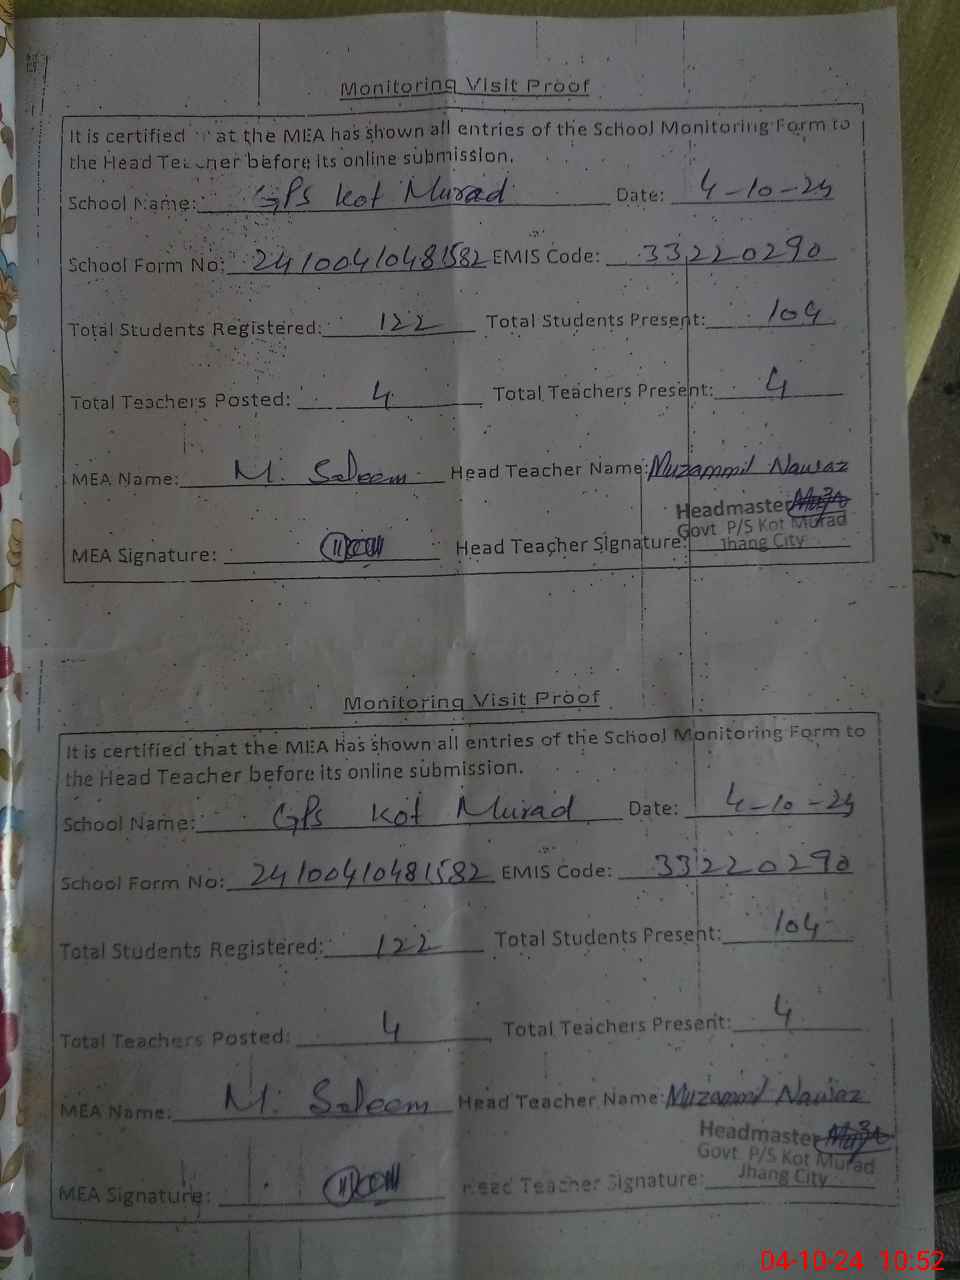 Monitoring Visit Proof
It is certified at the MEA has shown all entries of the School Monitoring Form to
the Head Teacher before its online submission.
School Name: GPS Kot Murad Date: 4-10-24
School Form No: 24100410481582 EMIS Code: 33220290
Total Students Registered: 122 Total Students Present: 104
Total Teachers Posted: 4 Total Teachers Present: 4
MEA Name: M. Saleem Head Teacher Name: Muzammil Nawaz
Headmaster
Govt P/S Kot Murad
Jhang City
MEA Signature: Head Teacher Signature:
Monitoring Visit Proof
It is certified that the MEA has shown all entries of the School Monitoring Form to
the Head Teacher before its online submission.
School Name: GPS Kot Murad Date: 4-10-24
School Form No: 24100410481582 EMIS Code: 33220290
Total Students Registered: 122 Total Students Present: 104
Total Teachers Posted: 4 Total Teachers Present: 4
MEA Name: M. Saleem Head Teacher Name: Muzammil Nawaz
Headmaster
Govt P/S Kot Murad
Jhang City
MEA Signature: Head Teacher Signature:
04-10-24 10:52